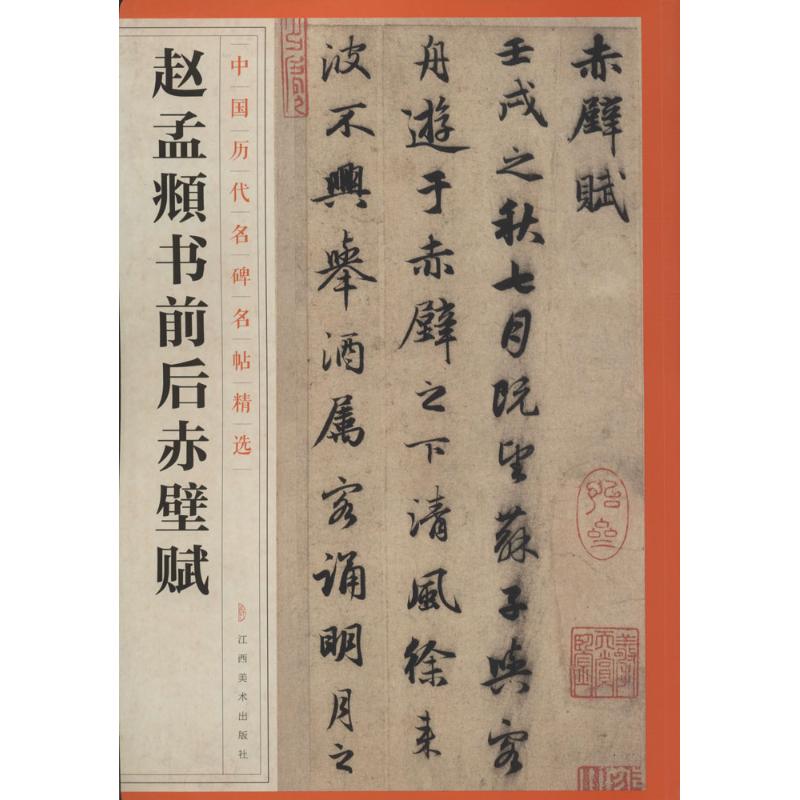 赵孟頫书前后赤壁赋
中国历代名碑名帖精选
江西美术出版社
赤壁賦
壬戌之秋七月既望蘇子與客
舟遊于赤壁之下清風徐来
波不興舉酒属客誦明月之